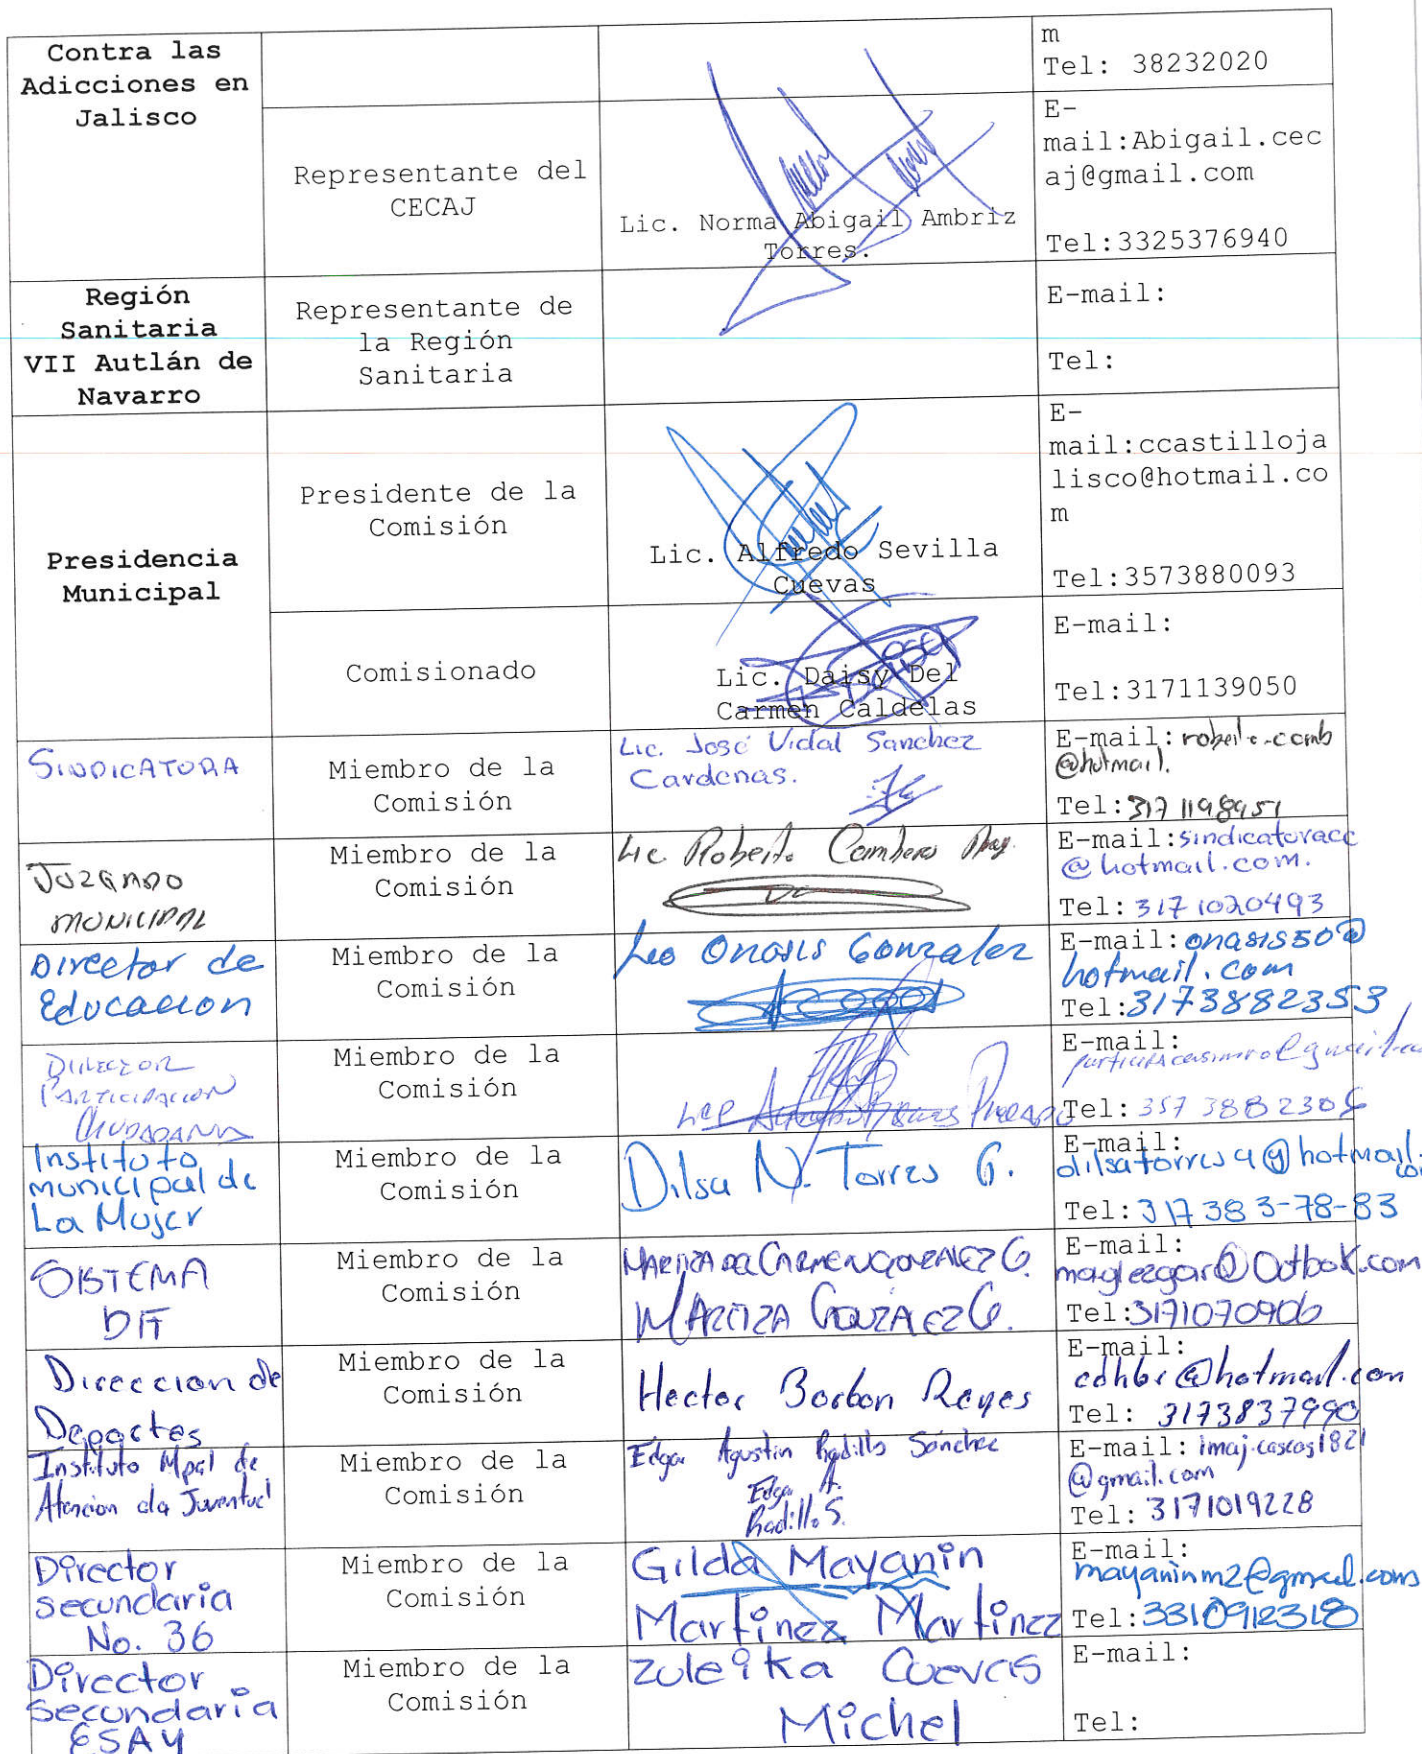 Contra las
Adicciones en
Jalisco
m
Tel: 38232020
Representante del
CECAJ
Lic. Norma Abigail Ambriz
Torres.
E-
mail:Abigail.cec
aj@gmail.com
Tel:3325376940
Región
Sanitaria
VII Autlán de
Navarro
Representante de
la Región
Sanitaria
E-mail:
Tel:
Presidencia
Municipal
Presidente de la
Comisión
Lic. Alfredo Sevilla
Cuevas
E-
mail:ccastilloja
lisco@hotmail.co
m
Tel:3573880093
Comisionado
Lic. Daisy Del
Carmen Caldelas
E-mail:
Tel:3171139050
SINDICATURA
Miembro de la
Comisión
Lic. José Vidal Sanchez
Cardenas.
E-mail:
@hotmail.
Tel:317 1198951
JUZGADO
MUNICIPAL
Miembro de la
Comisión
Lic Roberto
E-mail:sindicaturacc
@hotmail.com.
Tel: 317 1020493
Director de
Educacion
Miembro de la
Comisión
Leo Onasis Gonzalez
E-mail: onasis50@
hotmail.com
Tel:3173882353
DIRECTOR
PARTICIPACION
CIUDADANA
Miembro de la
Comisión
E-mail:
Tel: 357 3882306
Instituto
municipal de
La Mujer
Miembro de la
Comisión
Dilsa N. Torres G.
E-mail:
dilsatorres9@hotmail.
Tel:317383-78-83
SISTEMA
DIF
Miembro de la
Comisión
MARITZA DEL CARMEN GONZALEZ G.
MARITZA GONZALEZ G.
E-mail:
maglezgar@Outbok.com
Tel:3171070906
Direccion de
Deportes
Miembro de la
Comisión
Hector Borbon Reyes
E-mail:
cdhbr@hotmail.com
Tel: 3173837990
Instituto Mpal de
Atencion ala Juventud
Miembro de la
Comisión
Edgar Agustin Radillo Sánchez
Edgar A.
Radillo S.
E-mail: imaj.cascas1821
@gmail.com
Tel: 3171019228
Director
secundaria
No. 36
Miembro de la
Comisión
Gilda Mayanin
Martinez Martinez
E-mail:
mayaninm2@gmail.com
Tel:3310912318
Director
Secundaria
ESAY
Miembro de la
Comisión
Zuleika Cuevas
Michel
E-mail:
Tel: